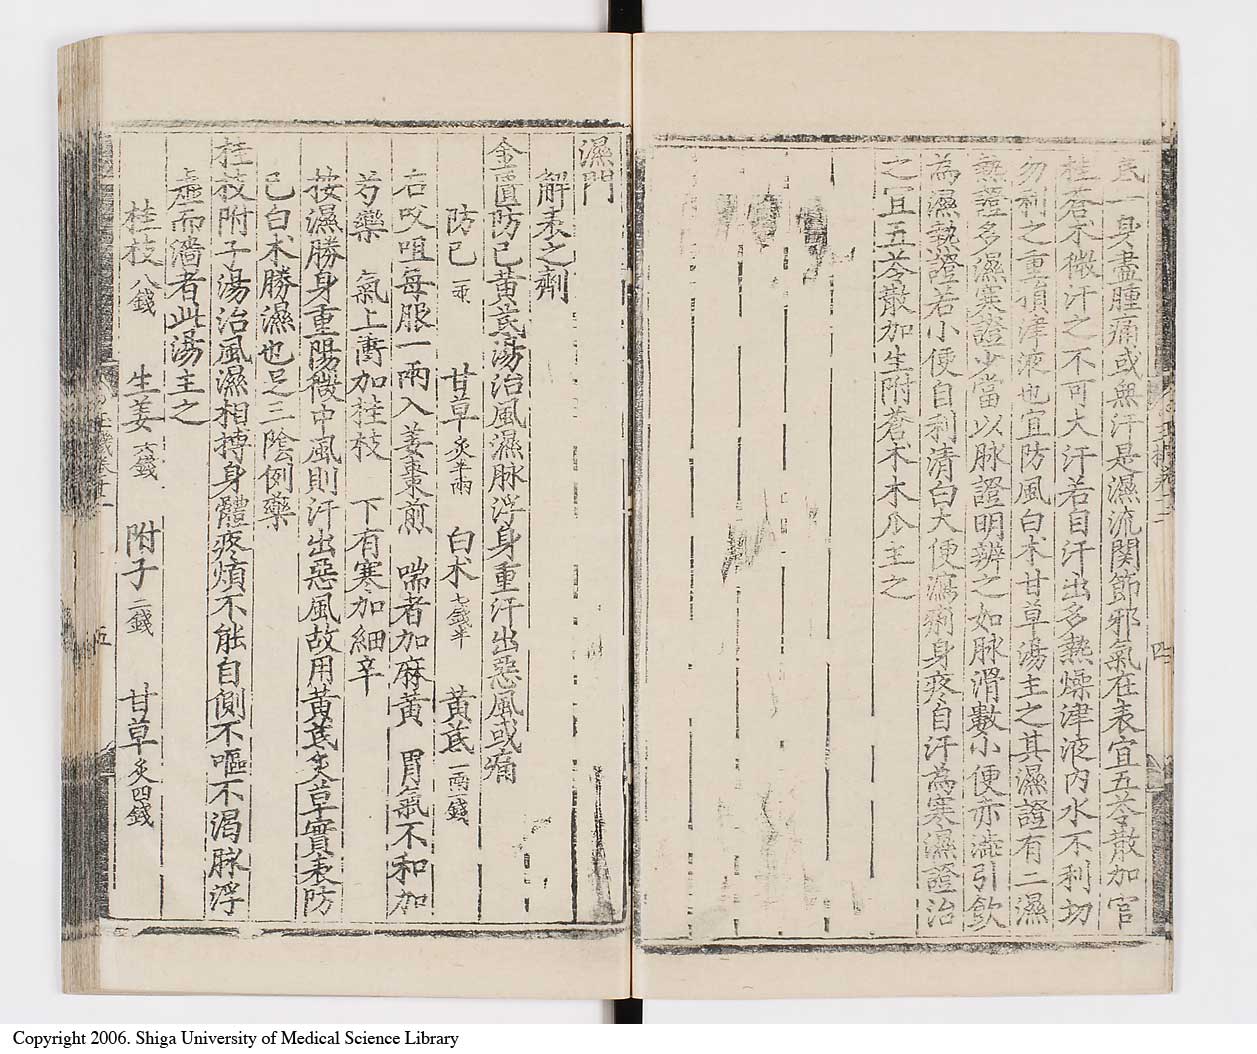 民一身盡腫痛或無汗是濕流関節邪氣在表宜五苓散加官
桂蒼朮微汗之不可大汗若自汗出多熱燥津液内水不利切
勿利之重損津液也宜防風白朮甘草湯主之其濕證有二濕
熱證多濕寒證少當以脉證明辨之如脉滑數小便赤澁引飲
為濕熱證若小便自利清白大便瀉痢身疼自汗為寒濕證治
之宜五苓散加生附蒼朮木瓜主之
四
濕門
解表之劑
金匱防己黄茋湯治風濕脉浮身重汗出惡風或痛
防己一兩 甘草炙半兩 白朮七錢半 黄茋一兩一錢
右㕮咀每服一兩入姜棗煎 喘者加麻黄 胃氣不和加
芍藥 氣上衝加桂枝 下有寒加細辛
按濕勝身重陽微中風則汗出惡風故用黄茋炙草實表防
己白朮勝濕也足三陰例藥
桂枝附子湯治風濕相摶身體疼煩不能自側不嘔不渴脉浮
虛而濇者此湯主之
桂枝八錢 生姜六錢 附子二錢 甘草炙四錢
五
Copyright 2006. Shiga University of Medical Science Library